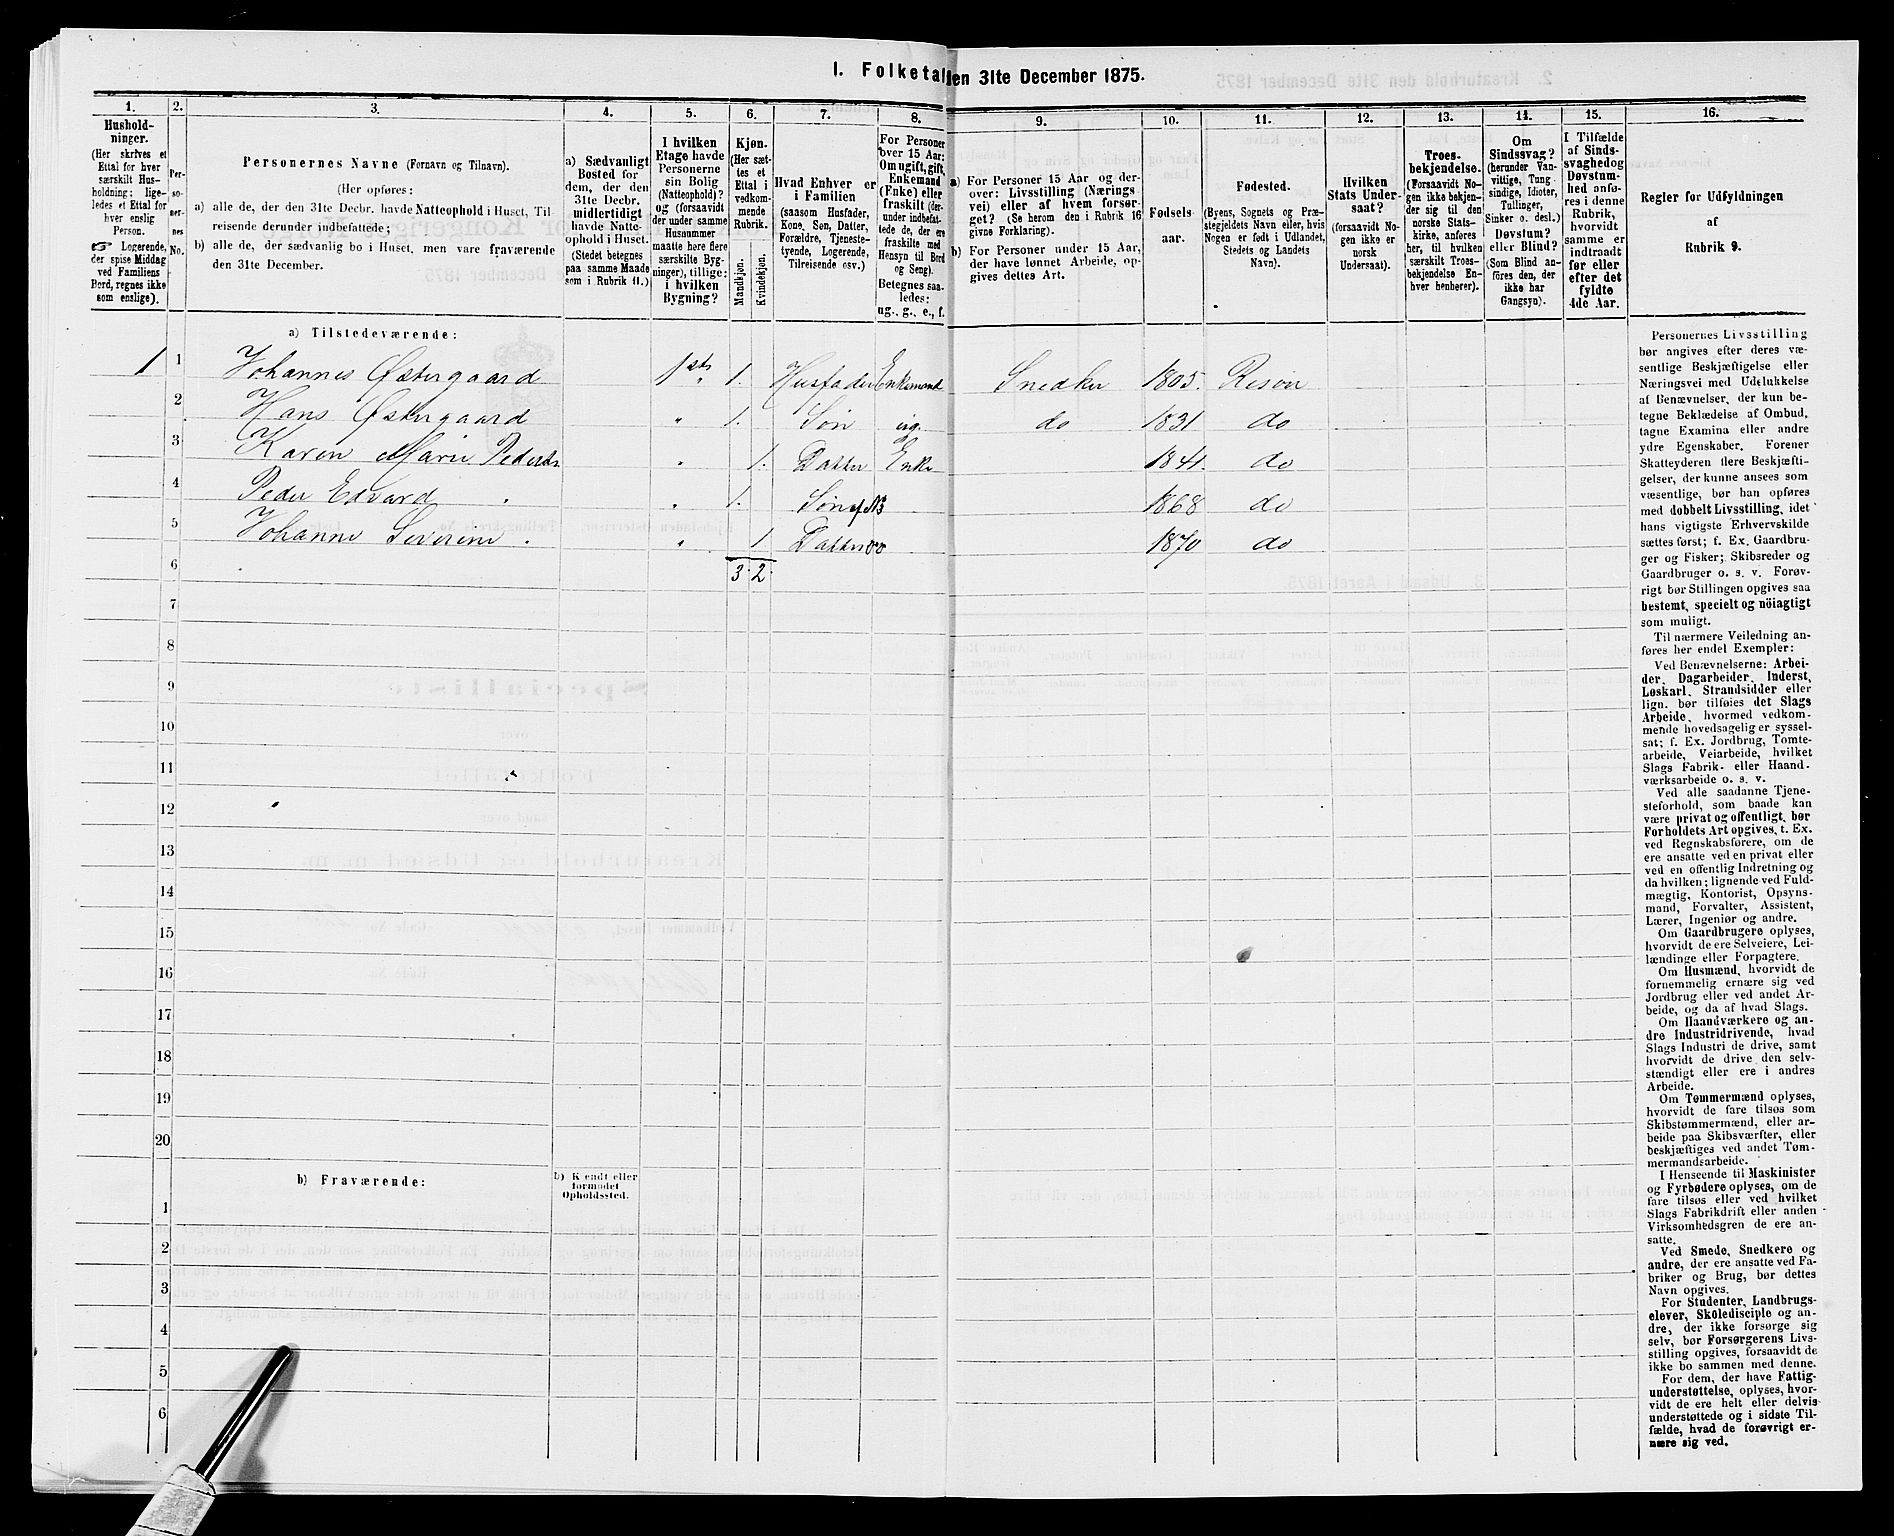 I. Folketal den 31te December 1875.
1.
Hushold-
ninger.
(Her skrives et
Ettal for hver
særskilt Hus-
holdning; lige-
ledes et Ettal for
hver enslig
Person.
☞ Logerende,
der spise Middag
ved Familiens
Bord, regnes ikke
som enslige).
2.
Per-
so-
ner-
nes
No.
3.
Personernes Navne (Fornavn og Tilnavn).
(Her opføres:
a) alle de, der den 31te Decbr. havde Natteophold i Huset, Til-
reisende derunder indbefattede;
b) alle de, der sædvanlig bo i Huset, men vare fraværende
den 31te December.
4.
a) Sædvanligt
Bosted for
dem, der den
31te Decbr.
midlertidigt
havde Natte-
ophold i Huset.
(Stedet betegnes
paa samme Maade
som i Rubrik 11.)
5.
I hvilken
Etage havde
Personerne
sin Bolig
(Natteophold)?
og (forsaavidt
der under samme
Husnummer
maatte høre flere
særskilte Byg-
ninger), tillige:
i hvilken
Bygning?
6.
Kjøn.
(Her sæt-
tes et
Ettal i
vedkom-
mende
Rubrik.
Mandkjøn.
Kvindekjøn.
7.
Hvad Enhver er
i Familien
(saasom Husfader,
Kone, Søn, Datter,
Forældre, Tjeneste-
tyende, Logerende,
Tilreisende osv.)
8.
For Personer
over 15 Aar:
Om ugift, gift,
Enkemand
(Enke) eller
fraskilt (der-
under indbefat-
tede de, der ere
fraskilte med
Hensyn til Bord
og Seng).
Betegnes saa-
ledes:
ug., g., e., f.
9.
a) For Personer 15 Aar og der-
over: Livsstilling (Nærings
vei) eller af hvem forsør-
get? (Se herom den i Rubrik 16
givne Forklaring).
b) For Personer under 15 Aar,
der have lønnet Arbeide, op-
gives dettes Art.
10.
Fødsels
aar.
11.
Fødested.
(Byens, Sognets og Præ-
stegjeldets Navn eller, hvis
Nogen er født i Udlandet,
Stedets og Landets
Navn).
12.
Hvilken
Stats Under-
saat?
(forsaavidt No-
gen ikke er
norsk
Undersaat).
13.
Troes-
bekjendelse.
(Forsaavidt No-
gen ikke bekjen-
der sig til den
norske Stats-
kirke, anføres
her, til hvilken
særskilt Troes-
bekjendelse En-
hver henhører).
14.
Om
Sindssvag?
(herunder Van-
vittige, Tung-
sindige, Idioter,
Tullinger,
Sinker o. desl.)
Døvstum?
eller Blind?
(Som Blind an-
føres den, der
ikke har
Gangsyn).
15.
I Tilfælde
af Sinds-
svaghed og
Døvstum-
hed anfø-
res i denne
Rubrik,
hvorvidt
samme er
indtraadt
før eller
efter det
fyldte
4de Aar.
16.
Regler for Udfyldningen
af
Rubrik 9.
a) Tilstedeværende:
1 1 Johannes Østergaard 1ste " 1. Husfader Enkemand Snedker 1805. Risør
2 Hans Østergaard " 1. Søn ug. do 1831 do
3 Karen Marie Pedersen " 1. Datter Enke 1841. do
4 Peder Edvard " " 1. Søn af N3 1868 do
5 Johanne Severine " " 1 Datter do 1870 do
6 3. 2.
7
8
9
10
11
12
13
14
15
16
17
18
19
20
b) Fraværende:
b) Kjendt eller
formodet
Opholdssted.
1
2
3
4
5
6
Personernes Livsstilling
bør angives efter deres væ-
sentlige Beskjæftigelse eller
Næringsvei med Udelukkelse
af Benævnelser, der kun be-
tegne Beklædelse af Ombud,
tagne Examina eller andre
ydre Egenskaber. Forener
Skatteyderen flere Beskjæfti-
gelser, der kunne ansees som
væsentlige, bør han opføres
med dobbelt Livsstilling, idet
hans vigtigste Erhvervskilde
sættes først; f. Ex. Gaardbru-
ger og Fisker; Skibsreder og
Gaardbruger o. s. v. Forøv-
rigt bør Stillingen opgives saa
bestemt, specielt og nöiagtigt
som muligt.
Til nærmere Veiledning an-
føres her endel Exempler:
Ved Benævnelserne: Arbei-
der, Dagarbeider, Inderst,
Løskarl, Strandsidder eller
lign. bør tilføies det Slags
Arbeide, hvormed vedkom-
mende hovedsagelig er syssel-
sat; f. Ex. Jordbrug, Tomte-
arbeide, Veiarbeide, hvilket
Slags Fabrik- eller Haand-
værksarbeide o. s. v.
Ved alle saadanne Tjene-
steforhold, som baade kan
være privat og offentligt, bør
Forholdets Art opgives, t. Ex.
ved Regnskabsførere, om de
ere ansatte ved en privat eller
ved en offentlig Indretning og
da hvilken; lignende ved Fuld-
mægtig, Kontorist, Opsyns-
mand, Forvalter, Assistent,
Lærer, Ingeniør og andre.
Om Gaardbrugere oplyses,
hvorvidt de ere Selveiere, Lei-
lændinge eller Forpagtere.
Om Husmænd, hvorvidt de
fornemmelig ernære sig ved
Jordbrug eller ved andet Ar-
beide, og da af hvad Slags.
Om Haandværkere og an-
dre Industridrivende, hvad
Slags Industri de drive, samt
hvorvidt de drive den selv-
stændigt eller ere i andres
Arbeide.
Om Tømmermænd oplyses,
hvorvidt de fare tilsøs som
Skibstømmermænd, eller ar-
beide paa Skibsværfter, eller
beskjæftiges ved andet Tøm-
mermandsarbeide.
I Henseende til Maskinister
og Fyrbødere oplyses, om de
fare tilsøs eller ved hvilket
Slags Fabrikdrift eller anden
Virksomhedsgren de ere an-
satte.
Ved Smede, Snedkere og
andre, der ere ansatte ved Fa-
briker og Brug, bør dettes
Navn opgives.
For Studenter, Landbrugs-
elever, Skoledisciple og an-
dre, der ikke forsørge sig
selv, bør Forsørgerens Livs-
stilling opgives, forsaavidt de
ikke bo sammen med denne.
For dem, der have Fattig-
understøttelse, oplyses, hvor-
vidt de ere helt eller delvis
understøttede og i sidste Til-
fælde, hvad de forøvrigt er-
nære sig ved.